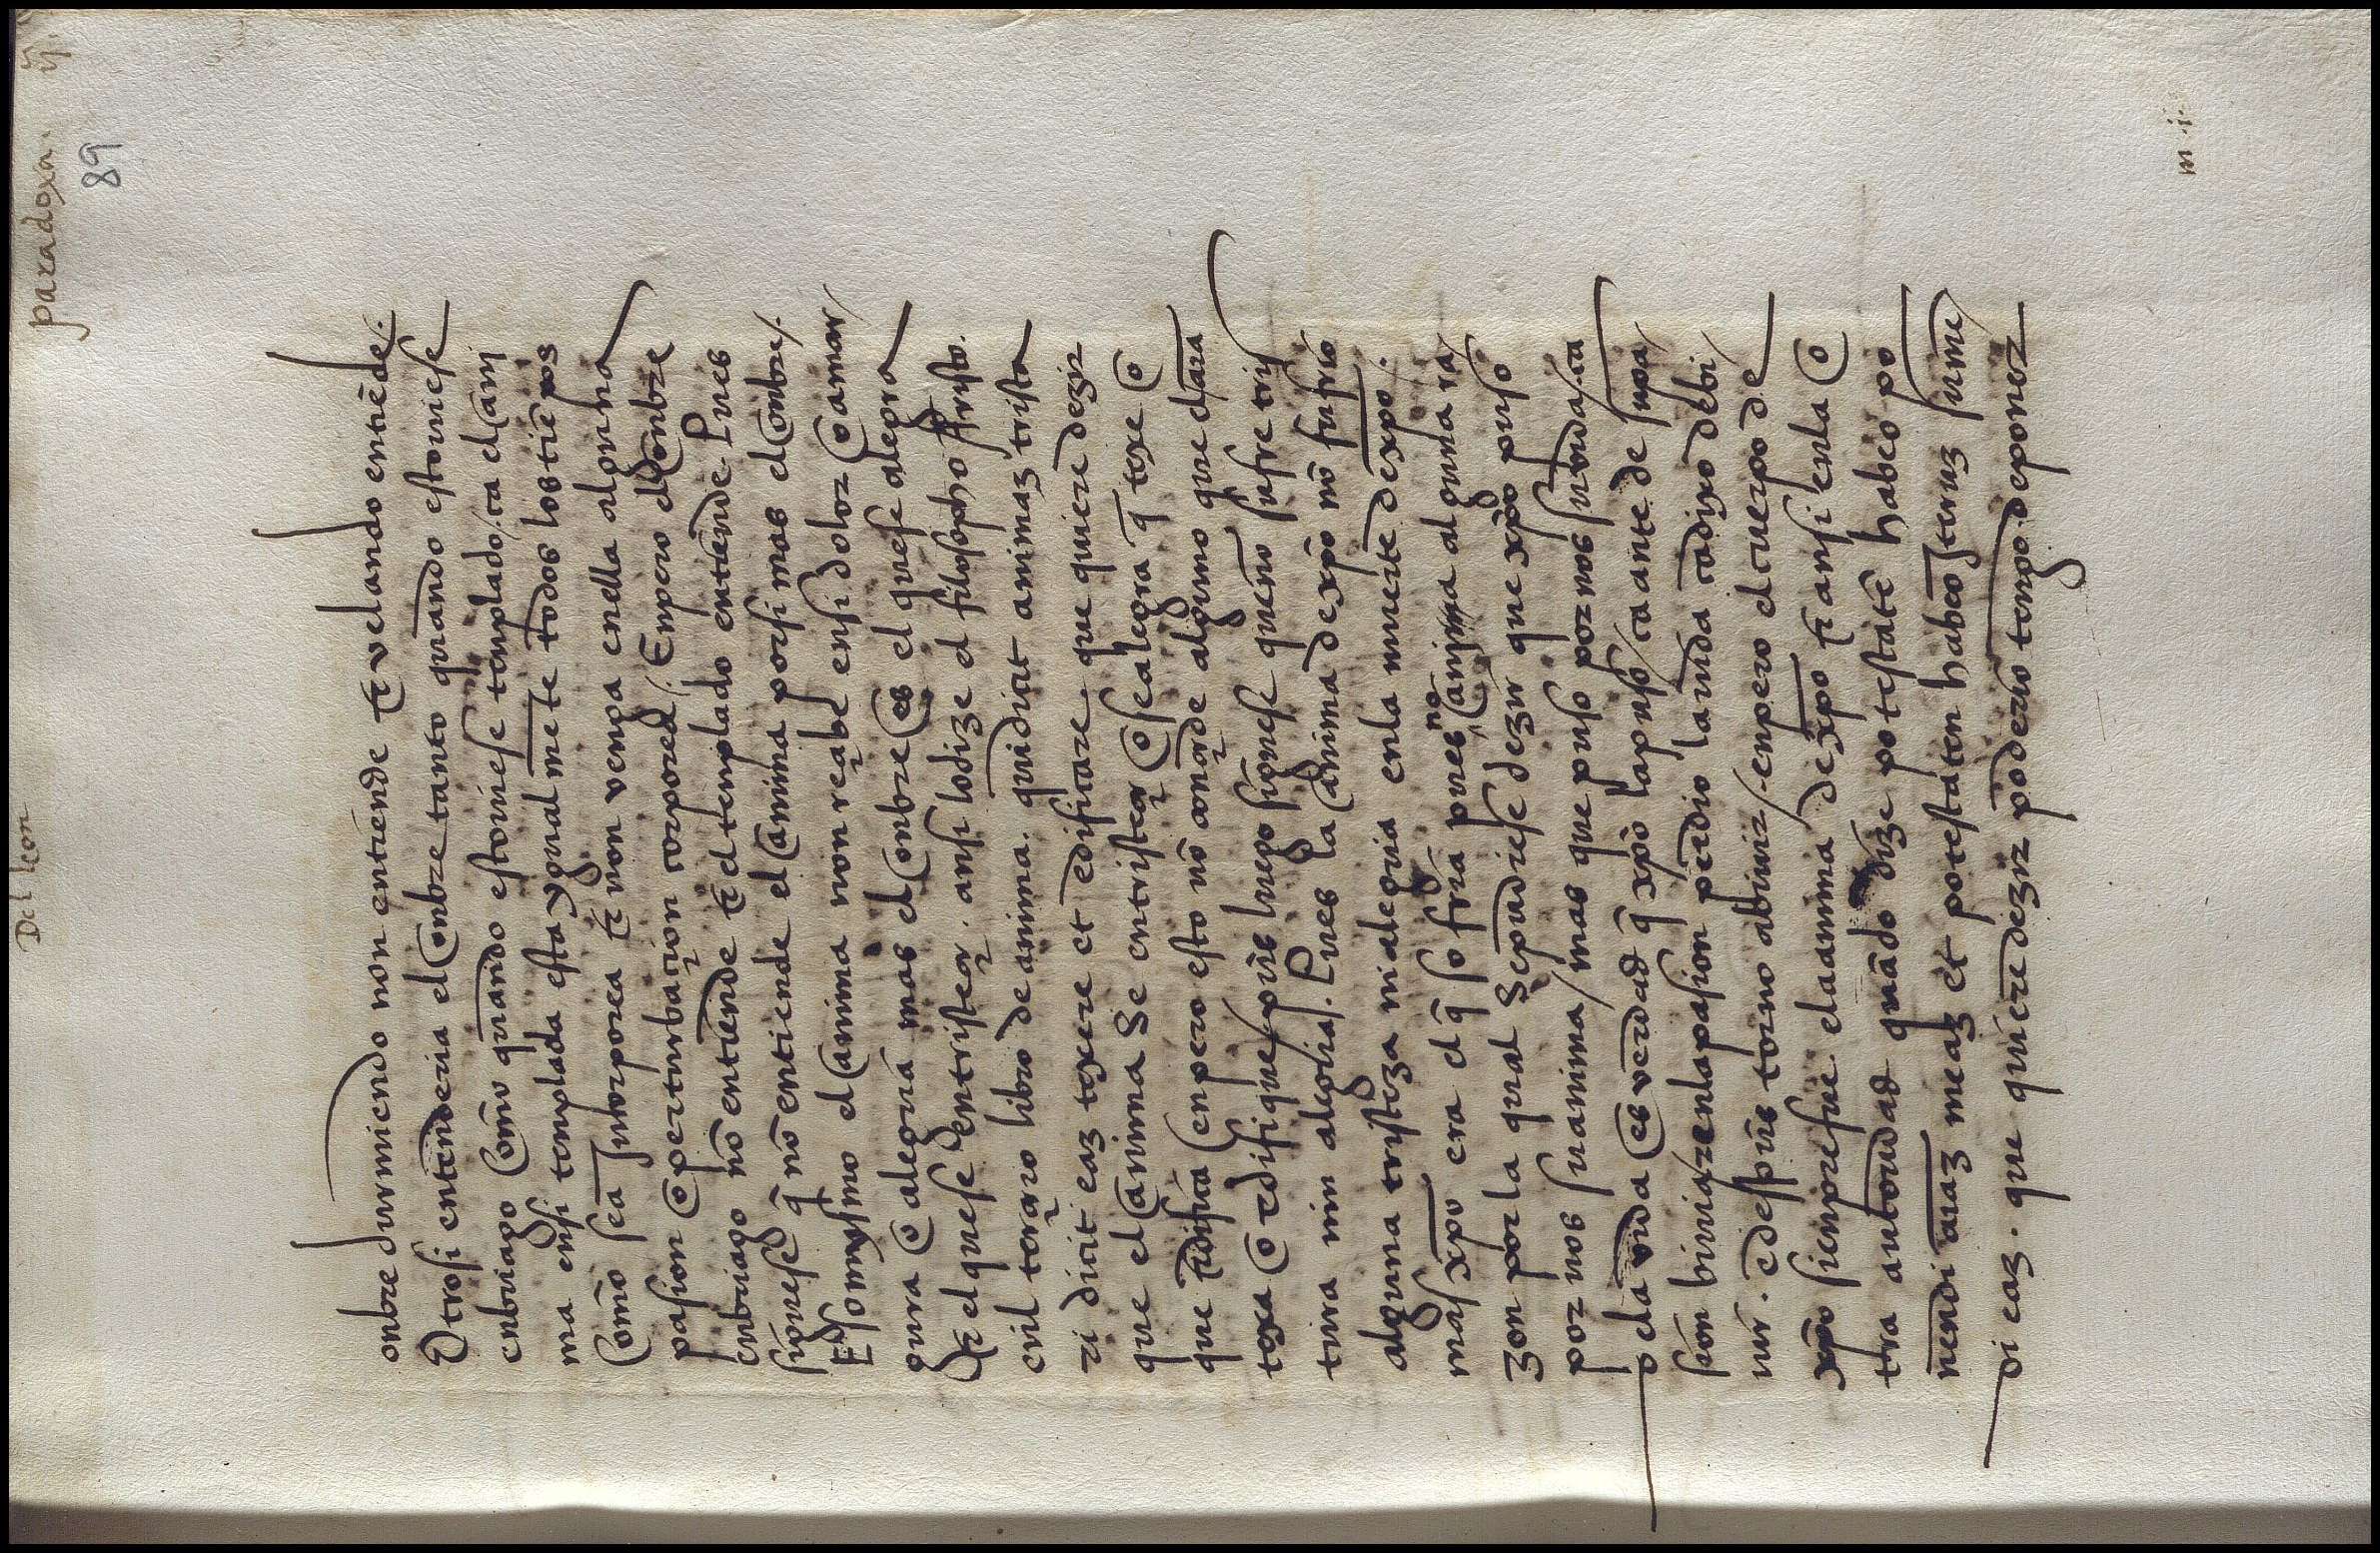 Del leon
paradoxa. ij.
89
onbre durmiendo non entiende τ velando entiẽde.
Otrosi entenderia el onbre tanto quando estouiese
enbriago como quando estouiese templado / ca el ani
ma ensi templada esta ygual mẽte todos los tiẽpos
como sea Jncorporea τ non venga enella alguna
pasion o perturbaçion corporea /. Empero el onbre
enbriago nõ entiende τ el templado entiende. Pues
siguese q̃ nõ entiende el anima por si mas el onbre /.
Eso mysmo el anima non reçabe ensi dolor o amar
gura o alegria mas el onbre es el que se alegra
τ el que se entristeçe. ansi lo dize el filosopho Aristo.
enel terçero libro de anima. qui dicit animaz trista
ri dicit eaz texere et edificare. que quiere dezir
que el anima se entristeçe o se alegra q̃ texe o
que edifica en pero esto nõ conçede alguno que el aĩa
texa o edifique / pues luego siguese que nõ sufre tris
tura nin alegria /. Pues la anima de xpõ nõ sufrio
alguna tristeza nialegria enla muerte de xpõ.
mas xpõ era el q̃ sofria pues no anima alguna ra
zon por la qual se pudiese dezir que xpõ puso
por nos su anima / mas que puso por nos su vida / ca
o la vida es verdad q̃ xpõ la puso / ca ante de su pa
sion biuia / τ enla pasion perdio la vida ca dixo de bi
uir. e despues torno a biuir /. enpero el cuerpo de
xpõ sienpre fue el anima de xpõ τ ansi enla o
tra autoridad quãdo dize potestatẽ habeo po
nendi aĩaz meaz et potestaten habeo Jteruz sume
di eaz. que quiere dezir poderio tengo de poner
m .i.